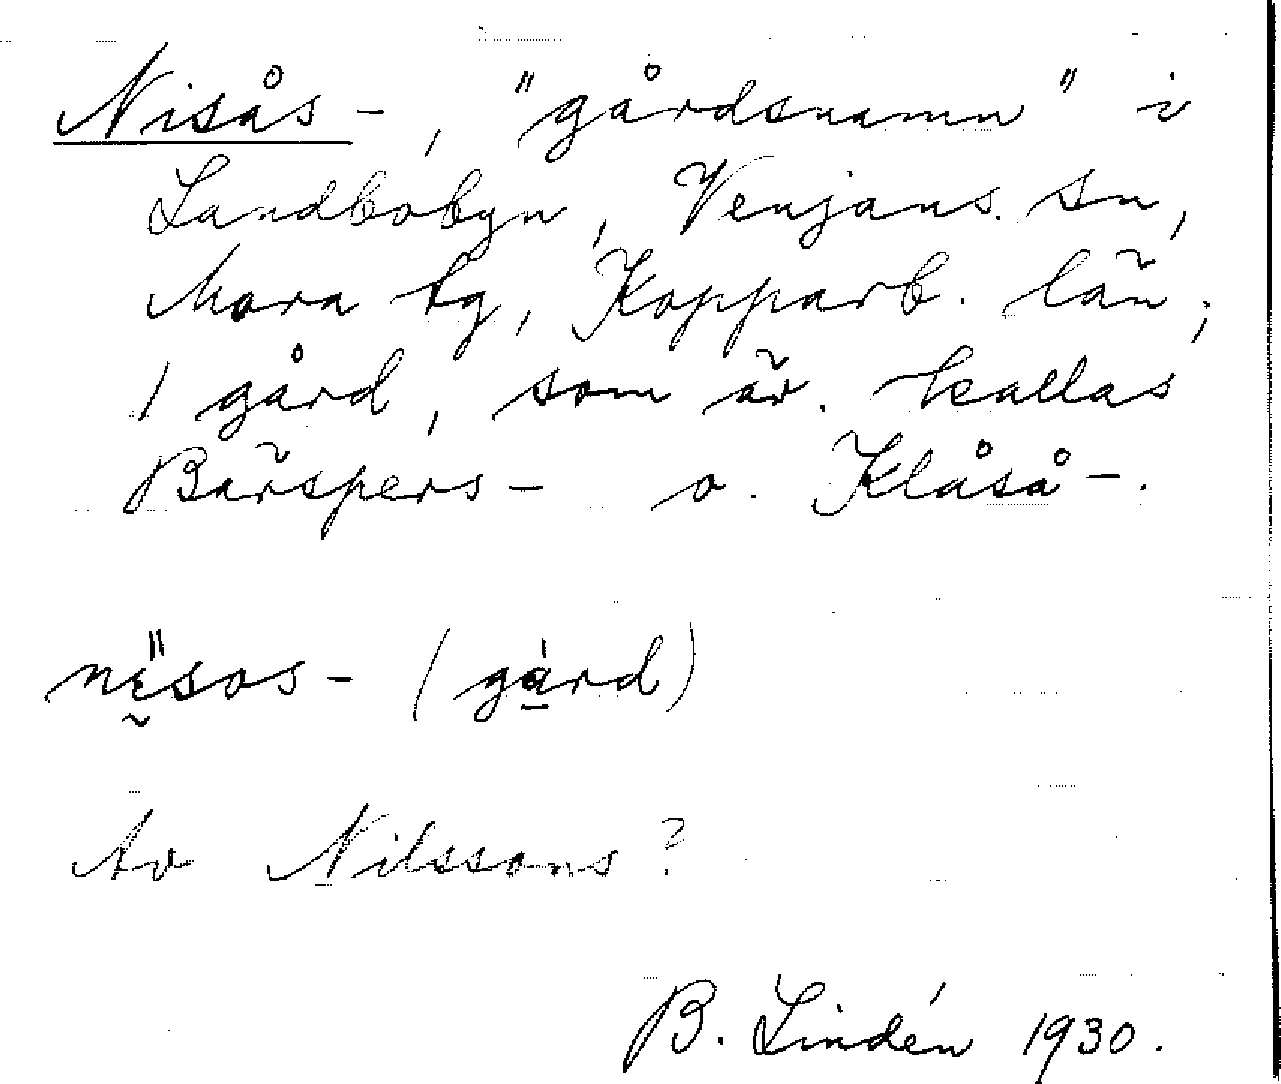 Nisås-, "gårdsnamn" i
Landbobyn, Venjans sn,
Mora tg, Kopparb. län;
1 gård, som äv. kallas
Bärspers- o. Klåså-.
nisos- (gård)
Av Nilssons?
B. Lindén 1930.